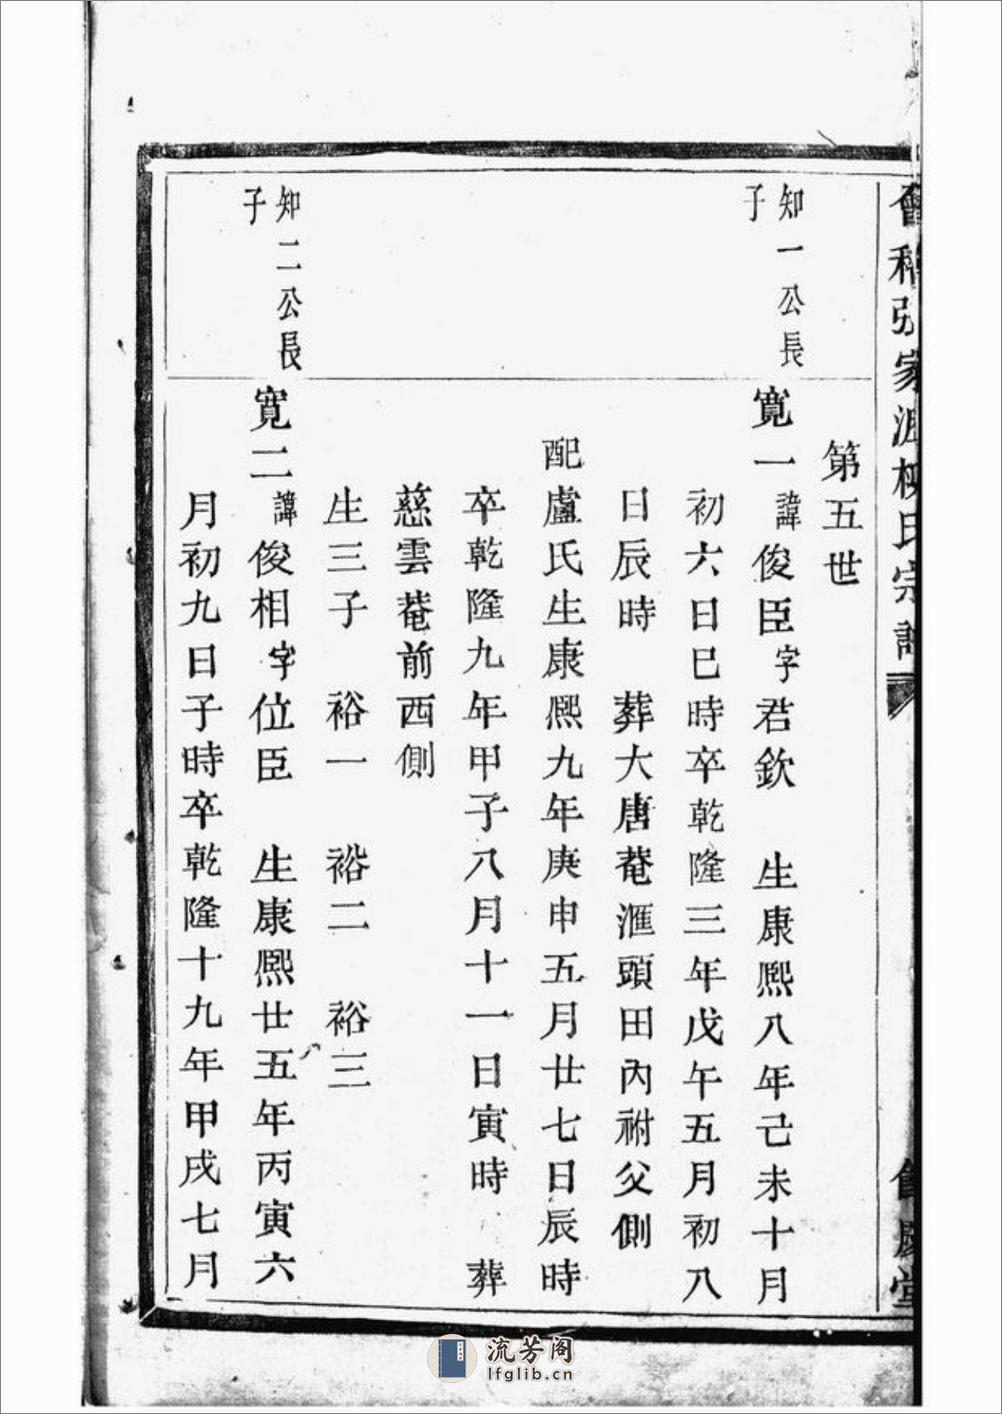 會稽張家漊柳氏宗譜
第五世
知一公長
子
寬一諱俊臣字君欽　生康熙八年己未十月
初六日巳時卒乾隆三年戊午五月初八
日辰時　葬大唐菴滙頭田內祔父側
配盧氏生康熙九年庚申五月廿七日辰時
卒乾隆九年甲子八月十一日寅時　葬
慈雲菴前西側
生三子　裕一　裕二　裕三
知二公長
子
寬二諱俊相字位臣　生康熙廿五年丙寅六
月初九日子時卒乾隆十九年甲戌七月
流芳阁
lfglib.cn